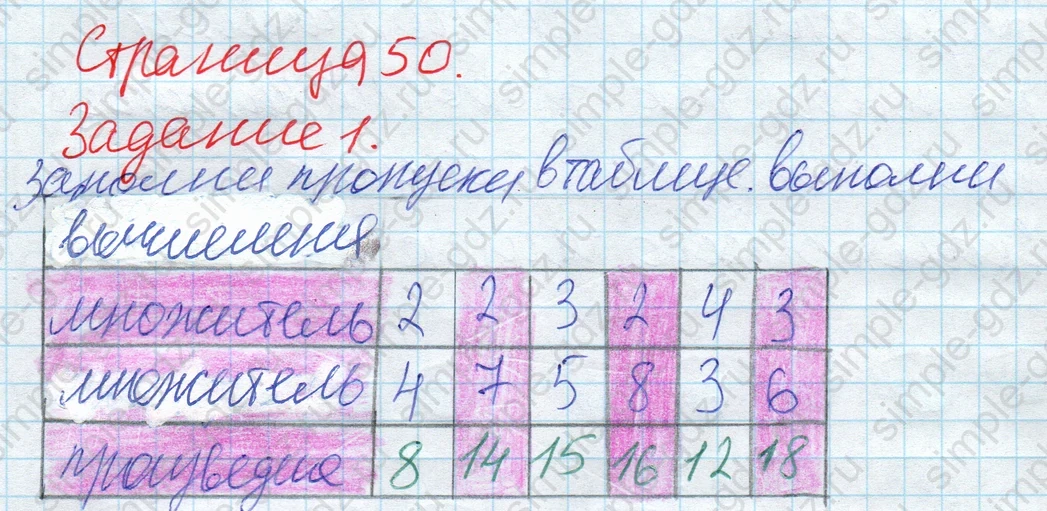 Страница 50.
Задание 1.
Заполни пропуски в таблице. выполни
вычисления
множитель 2 2 3 2 4 3
множитель 4 7 5 8 3 6
произведние 8 14 15 16 12 18
simple-gdz.ru